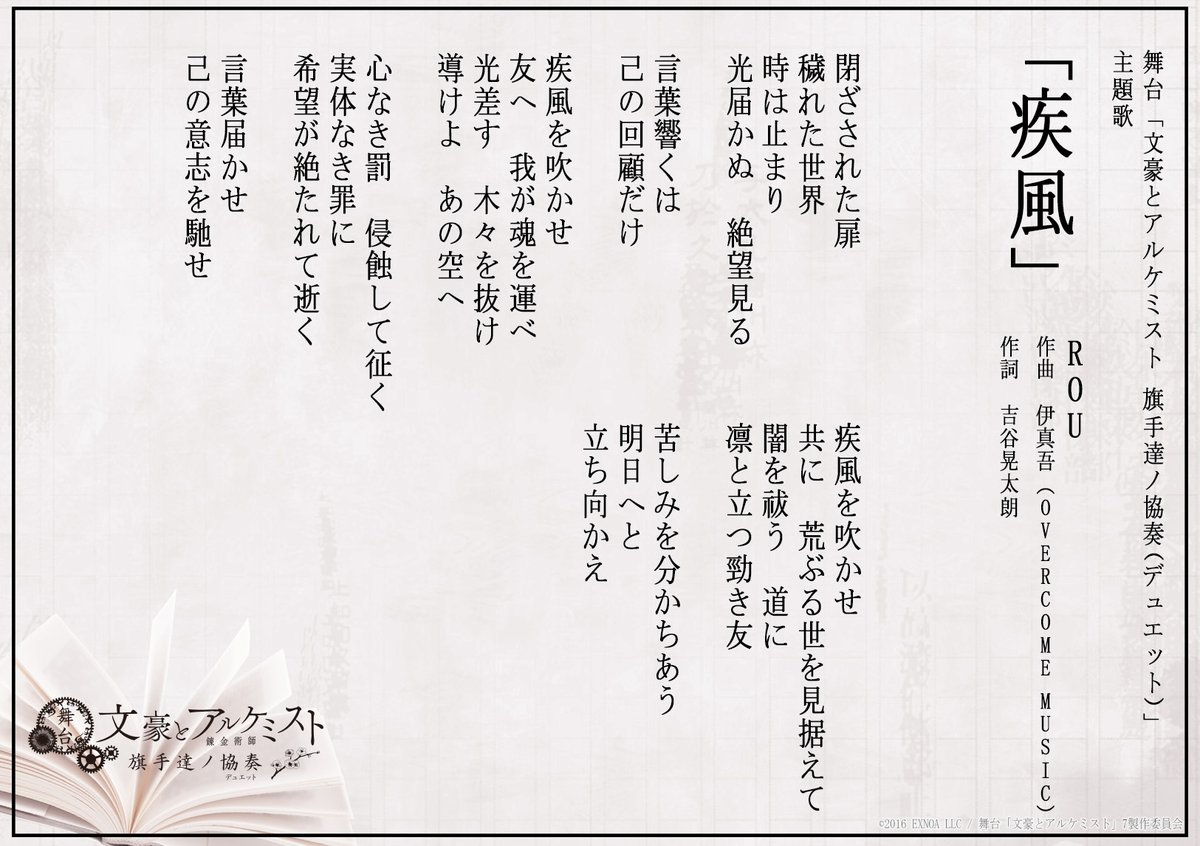 舞台「文豪とアルケミスト 旗手達ノ協奏(デュエット)」
主題歌
「疾風」
ROU
作曲　伊真吾(OVERCOME MUSIC)
作詞　吉谷晃太朗
閉ざされた扉
穢れた世界
時は止まり
光届かぬ　絶望見る
言葉響くは
己の回顧だけ
疾風を吹かせ
友へ　我が魂を運べ
光差す　木々を抜け
導けよ　あの空へ
心なき罰　侵蝕して征く
実体なき罪に
希望が絶たれて逝く
言葉届かせ
己の意志を馳せ
疾風を吹かせ
共に　荒ぶる世を見据えて
闇を祓う　道に
凛と立つ勁き友
苦しみを分かちあう
明日へと
立ち向かえ
舞台
文豪とアルケミスト
錬金術師
旗手達ノ協奏
デュエット
©2016 EXNOA LLC / 舞台「文豪とアルケミスト」7製作委員会